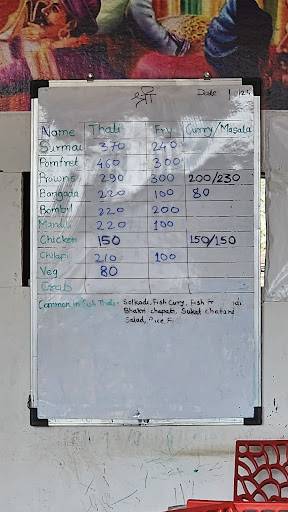 श्री
Date
Name Thali Fry Curry/Masala
Surmai 370 240
Pomfret 460 300
Prawns 290 300 200/230
Bangada 220 100 80
Bombil 220 200
Mandali 220 100
Chicken 150 150/150
Chilapi 210 100
Veg 80
Crab
Common in Fish Thali: Solkadi, Fish Curry, Fish
Bhakri chapati, Suket chatani
Salad,